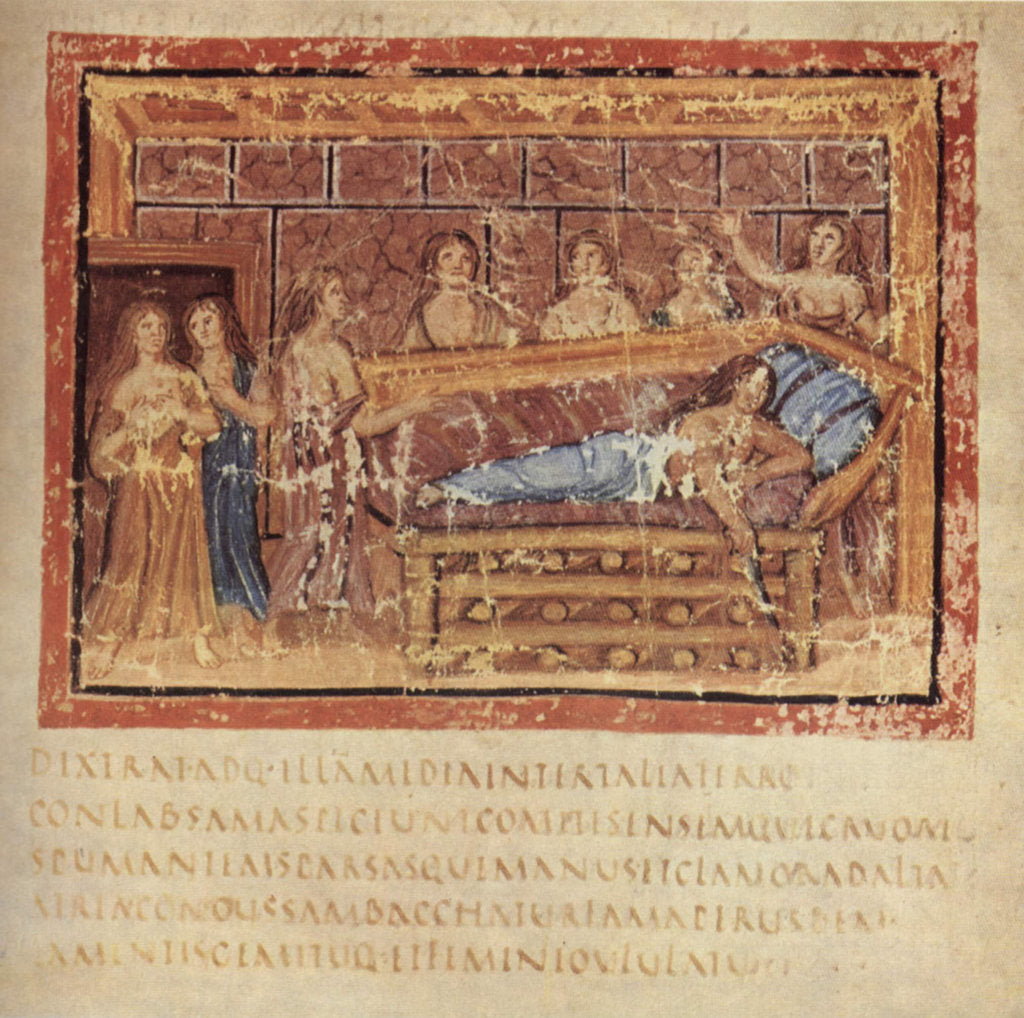 DIXERATADQ·ILLĀMEDIAINTERTALIAFERRO
CONLABSAMASPICIUNTCOMITESENSEMQUECRUOR
SPUMANTEMSPARSASQUEMANUSITCLAMORADALTA
ATRIACONCUSSAMBACCHATURFAMAPERURBE
LAMENTISGEMITUQ·ETFEMINEOULULATU